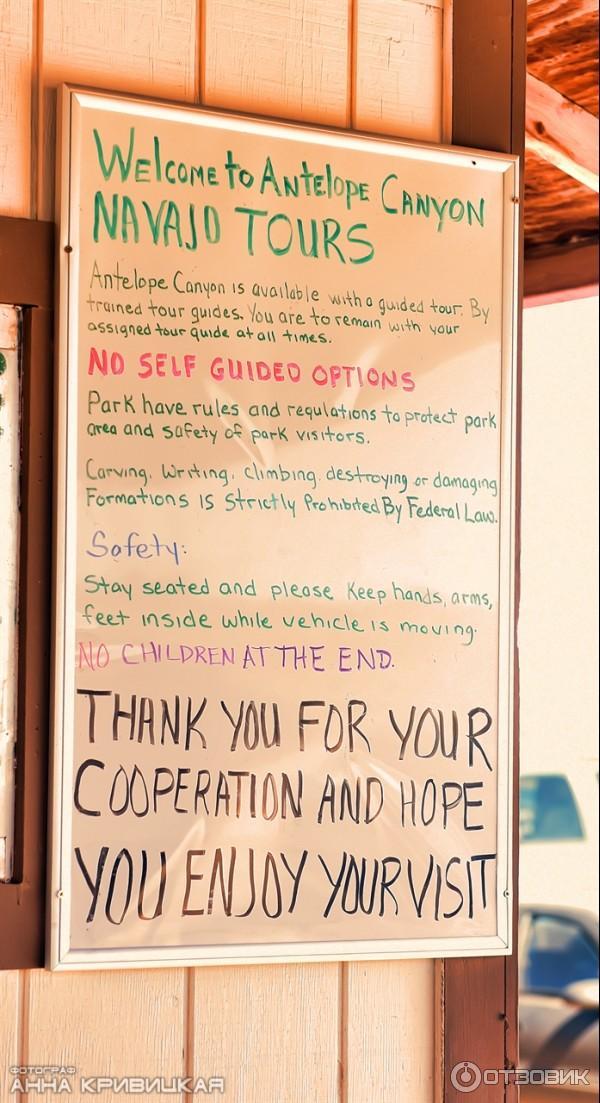 WELCOME to ANTELOPE CANYON
NAVAJO TOURS
Antelope Canyon is available with a guided tour. By
trained tour guides. You are to remain with your
assigned tour guide at all times.
NO SELF GUIDED OPTIONS
Park have rules and regulations to protect park
area and safety of park visitors.
Carving, Writing, climbing, destroying or damaging
Formations is Strictly Prohibited By Federal Law.
Safety:
Stay seated and please Keep hands, arms,
feet inside while vehicle is moving.
NO CHILDREN AT THE END.
THANK YOU FOR YOUR
COOPERATION AND HOPE
YOU ENJOY YOUR VISIT
ФОТОГРАФ
АННА КРИВИЦКАЯ
ОТЗОВИК